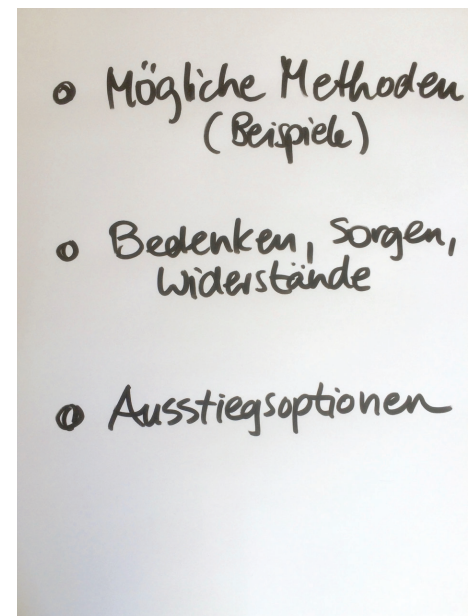 • Mögliche Methoden
(Beispiele)
• Bedenken, Sorgen,
Widerstände
• Ausstiegsoptionen